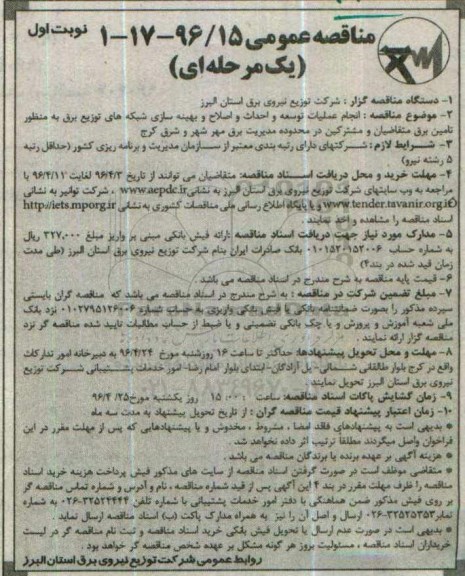 مناقصه عمومی ۹۶/۱۵-۱۷-۱ نوبت اول
(یک مرحله ای)
۱- دستگاه مناقصه گزار : شرکت توزیع نیروی برق استان البرز
۲- موضوع مناقصه : انجام عملیات توسعه و احداث و اصلاح و بهینه سازی شبکه های توزیع برق به منظور
تامین برق متقاضیان و مشترکین در محدوده مدیریت برق مهر شهر و شرق کرج
۳- شرایط لازم : شرکتهای دارای رتبه بندی معتبر از سازمان مدیریت و برنامه ریزی کشور (حداقل رتبه
۵ رشته نیرو)
۴- مهلت خرید و محل دریافت اسناد مناقصه: متقاضیان می توانند از تاریخ ۹۶/۴/۳ لغایت ۹۶/۴/۱۱ با
مراجعه به وب سایتهای شرکت توزیع نیروی برق استان البرز به نشانی www.aepdc.ir ، شرکت توانیر به نشانی
www.tender.tavanir.org.ir و یا پایگاه اطلاع رسانی ملی مناقصات کشوری به نشانی http://iets.mporg.ir
اسناد مناقصه را مشاهده و اخذ نمایند .
۵- مدارک مورد نیاز جهت دریافت اسناد مناقصه :ارائه فیش بانکی مبنی بر واریز مبلغ ۳۲۷,۰۰۰ ریال
به شماره حساب ۰۱۰۱۵۲۰۱۵۳۰۰۶ بانک صادرات ایران بنام شرکت توزیع نیروی برق استان البرز (طی مدت
زمان قید شده در بند۴)
۶- قیمت پایه مناقصه به شرح مندرج در اسناد مناقصه می باشد .
۷- مبلغ تضمین شرکت در مناقصه : به شرح مندرج در اسناد مناقصه می باشد که مناقصه گران بایستی
سپرده مذکور را بصورت ضمانتنامه بانکی یا فیش بانکی واریزی به حساب شماره ۰۱۰۲۷۹۵۱۲۶۰۰۶ نزد بانک
ملی شعبه آموزش و پرورش و یا چک بانکی تضمینی و یا ضبط از حساب مطالبات تایید شده مناقصه گر نزد
مناقصه گزار ارائه نمایند .
۸- مهلت و محل تحویل پیشنهادها: حداکثر تا ساعت ۱۶ روزشنبه مورخ ۹۶/۴/۲۴ به دبیرخانه امور تدارکات
واقع در کرج بلوار طالقانی شمالی- پل آزادگان- ابتدای بلوار امام رضا- امور خدمات پشتیبانی شرکت توزیع
نیروی برق استان البرز تحویل نمایند.
۹- زمان گشایش پاکات اسناد مناقصه: ساعت ۱۵:۰۰ روز یکشنبه مورخ ۹۶/۴/۲۵
۱۰- زمان اعتبار پیشنهاد قیمت مناقصه گران : از تاریخ تحویل پیشنهاد به مدت سه ماه
* بدیهی است به پیشنهادهای فاقد امضا ، مشروط ، مخدوش و یا پیشنهادهایی که پس از مهلت مقرر در این
فراخوان واصل میگردند مطلقا ترتیب اثر داده نخواهد شد.
* هزینه آگهی بر عهده برنده یا برندگان مناقصه می باشد .
* متقاضی موظف است در صورت گرفتن اسناد مناقصه از سایت های مذکور فیش پرداخت هزینه خرید اسناد
مناقصه را ظرف مهلت مقرر در بند ۴ این آگهی پس از قید شماره مناقصه ، نام و آدرس و شماره تماس مناقصه گر
بر روی فیش مذکور ضمن هماهنگی با دفتر امور خدمات پشتیبانی با شماره تلفن ۳۲۵۲۴۴۴۴-۰۲۶ به شماره
نمابر ۳۲۵۲۵۳۵۳-۰۲۶ ارسال و اصل آن را نیز به همراه مدارک پاکت (ب) اسناد مناقصه ارسال نماید
* بدیهی است در صورت عدم ارسال یا تحویل فیش بانکی خرید اسناد مناقصه و ثبت نام مناقصه گر در لیست
خریداران اسناد مناقصه ، مسئولیت بروز هر گونه مشکل بر عهده شخص مناقصه گر خواهد بود .
روابط عمومی شرکت توزیع نیروی برق استان البرز